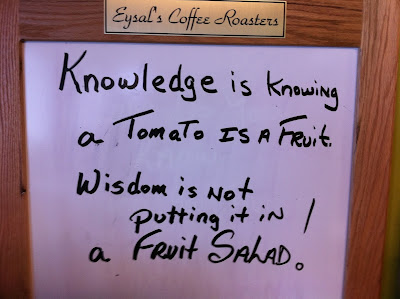 Eysal's Coffee Roasters
Knowledge is Knowing
a Tomato IS A Fruit.
Wisdom is Not
Putting it in !
a Fruit SALAD.